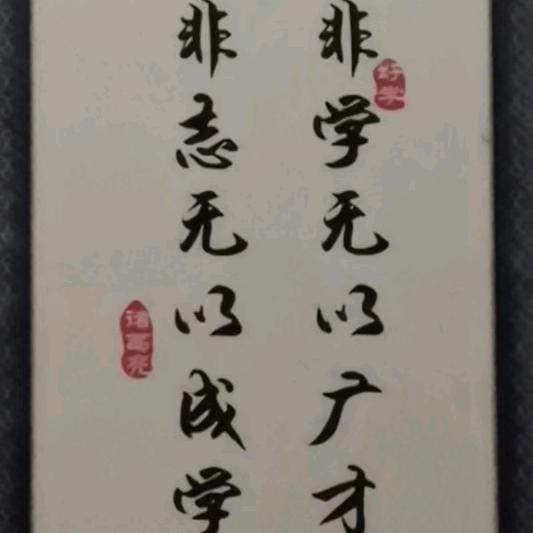 非学无以广才
好学
非志无以成学
诸葛亮